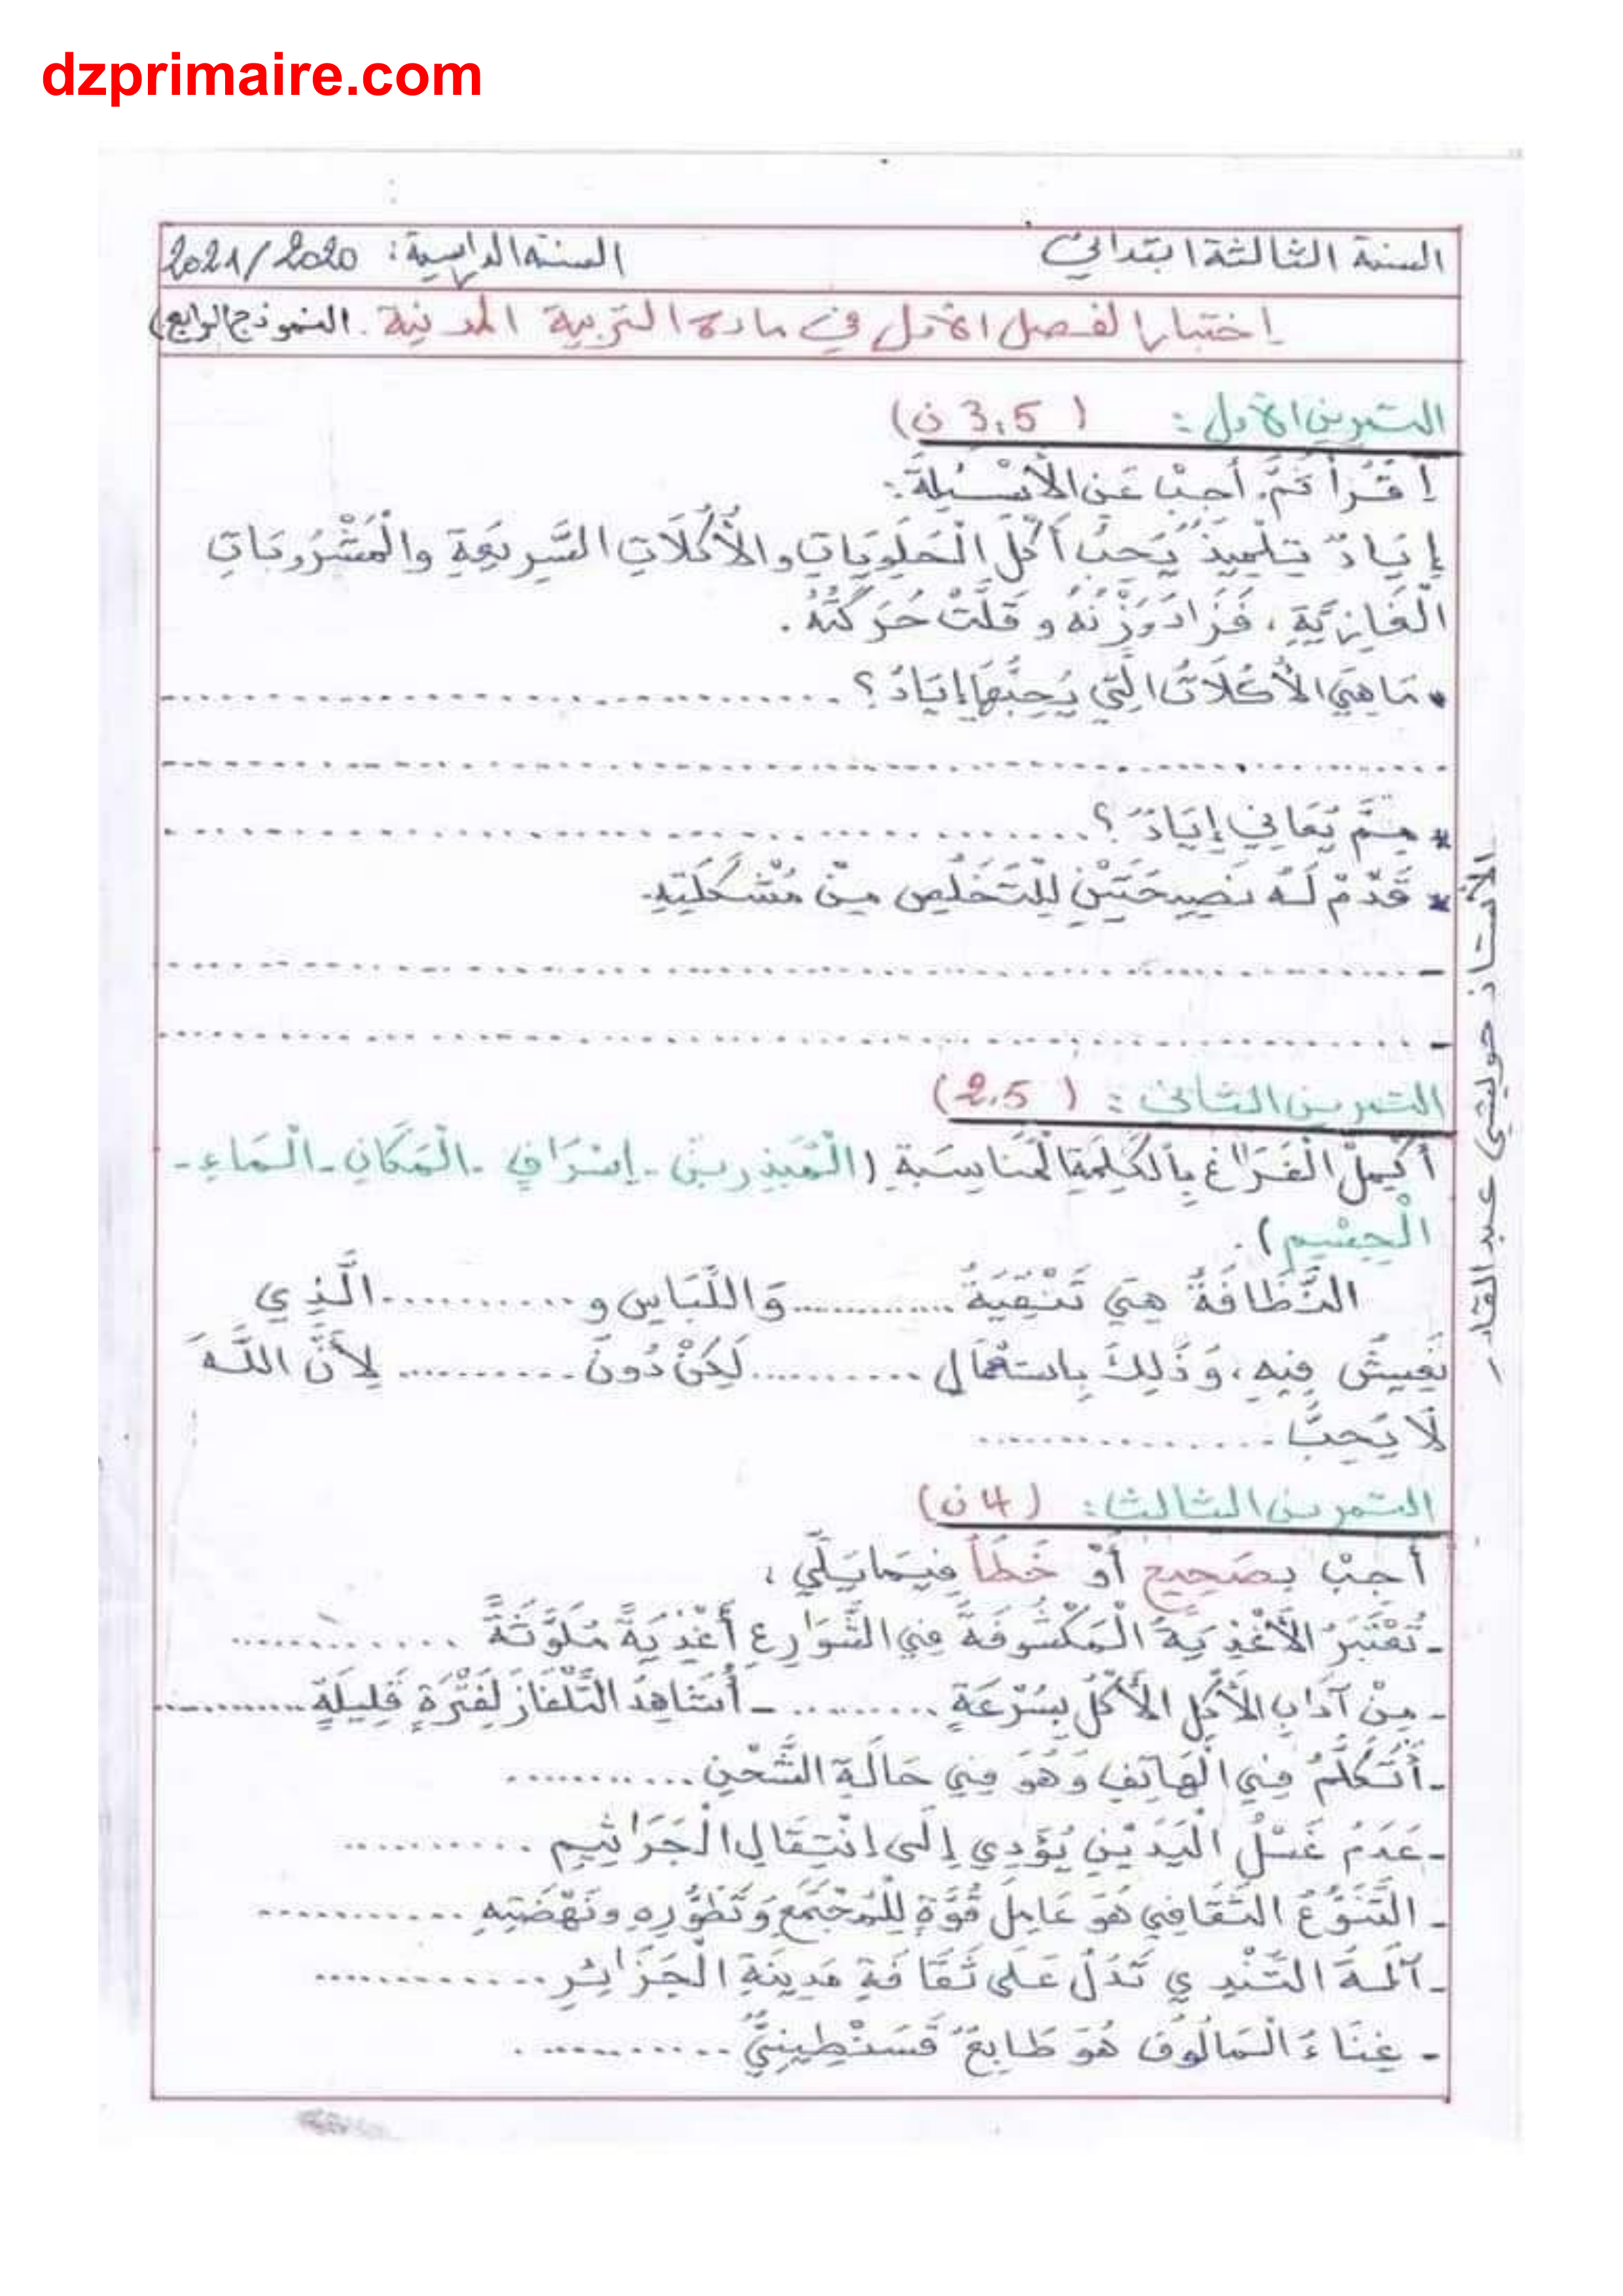 dzprimaire.com
السنة الثالثة ابتدائي السنة الدراسية: 2021/2020
إختبار الفصل الأول في مادة التربية المدنية. النموذج الرابع)
التمرين الأول: ( 3,5 ن)
إِقْرَأْ ثُمَّ أَجِبْ عَنِ الْأَسْئِلَةِ:
إِيَادٌ تِلْمِيذٌ يُحِبُّ أَكْلَ الْحَلَوِيَاتِ وَالْأُكُلَاتِ السَّرِيعَةِ وَالْمَشْرُوبَاتِ
الْغَازِيَّةِ، فَزَادَ وَزْنُهُ وَ قَلَّتْ حَرَكَتُهُ.
• مَاهِيَ الْأُكُلَاتُ الَّتِي يُحِبُّهَا إِيَادٌ؟ ............................
............................................................
* مِمَّ يُعَانِي إِيَادٌ؟ ........................................
* قَدِّمْ لَهُ نَصِيحَتَيْنِ لِلتَّخَلُّصِ مِنْ مُشْكِلَتِهِ.
- ............................................................
- ............................................................
التمرين الثاني: ( 2,5)
أَكْمِلُ الْفَرَاغَ بِالْكَلِمَةِ الْمُنَاسَبَةِ (الْمُبَذِرِينَ - إِسْرَافٍ - الْمَكَانِ - الْمَاءِ -
الْجِسْمِ).
النَّظَافَةُ هِيَ تَنْقِيَةُ ............ وَاللِّبَاسِ و ............ الَّذِي
نَعِيشُ فِيهِ، وَذَلِكَ بِاسْتِعْمَالِ ............ لَكِنْ دُونَ ............ لِأَنَّ اللَّهَ
لَا يُحِبُّ ................
التمرين الثالث: (4 ن)
أَجِبْ بِصَحِيحٍ أَوْ خَطَأ فِيمَايَلِي:
- تُعْتَبَرُ الْأَغْذِيَةُ الْمَكْشُوفَةُ فِي الشَّوَارِعِ أَغْذِيَةً مُلَوَّثَةً ............
- مِنْ آدَابِ الْأَكْلِ الْأَكْلُ بِسُرْعَةٍ .......... - أُشَاهِدُ التِّلْفَازَ لِفَتْرَةٍ قَلِيلَةٍ ............
- أَتَكَلَّمُ فِي الْهَاتِفِ وَهُوَ فِي حَالَةِ الشَّحْنِ ............
- عَدَمُ غَسْلُ الْيَدَيْنِ يُؤَدِي إِلَى انْتِقَالِ الْجَرَاثِيمِ ..........
- التَّنَوُّعُ الثَّقَافِي هُوَ عَامِلُ قُوَّةٍ لِلْمُجْتَمَعِ وَتَطَوُّرِهِ وَنَهْضَتِهِ ............
- آلَةُ التِّنْدِي تَدُلُّ عَلَى ثَقَافَةِ مَدِينَةِ الْجَزَائِرِ .............
- غِنَاءُ الْمَالُوفِ هُوَ طَابِعٌ قَسَنْطِينِيٌّ ............
الأستاذ حوليشي عبد القادر